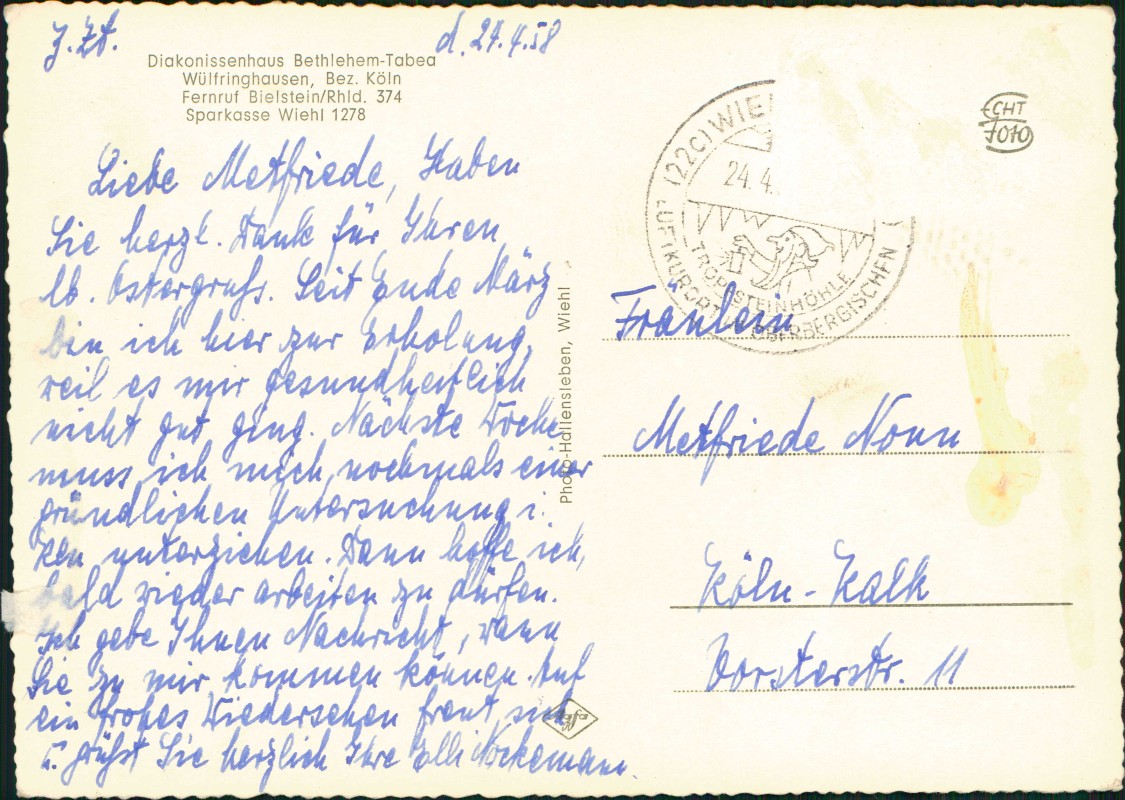 z. Zt.
d. 24.4.58
Diakonissenhaus Bethlehem-Tabea
Wülfringhausen, Bez. Köln
Fernruf Bielstein/Rhld. 374
Sparkasse Wiehl 1278
Liebe Metfriede, Haben
Sie herzl. Dank für Ihren
lb. Ostergruß. Seit Ende März
bin ich hier zur Erholung,
weil es mir gesundheitlich
nicht gut ging. Nächste Woche
muss ich mich nochmals einer
gründlichen Untersuchung i.
unterziehen. Dann hoffe ich,
bald wieder arbeiten zu dürfen.
Ich gebe Ihnen Nachricht, wann
Sie zu mir kommen können. Auf
ein frohes Wiedersehen freut sich
u. grüßt Sie herzlich Ihre Elli Nockemann.
Photo-Hallensleben, Wiehl
Agfa
(22C) WIE
24.4.
TROPFSTEINHÖHLE
LUFTKURORT OBERBERGISCHEN
ECHT
FOTO
Fräulein
Metfriede Nonn
Köln-Kalk
Vorsterstr. 11